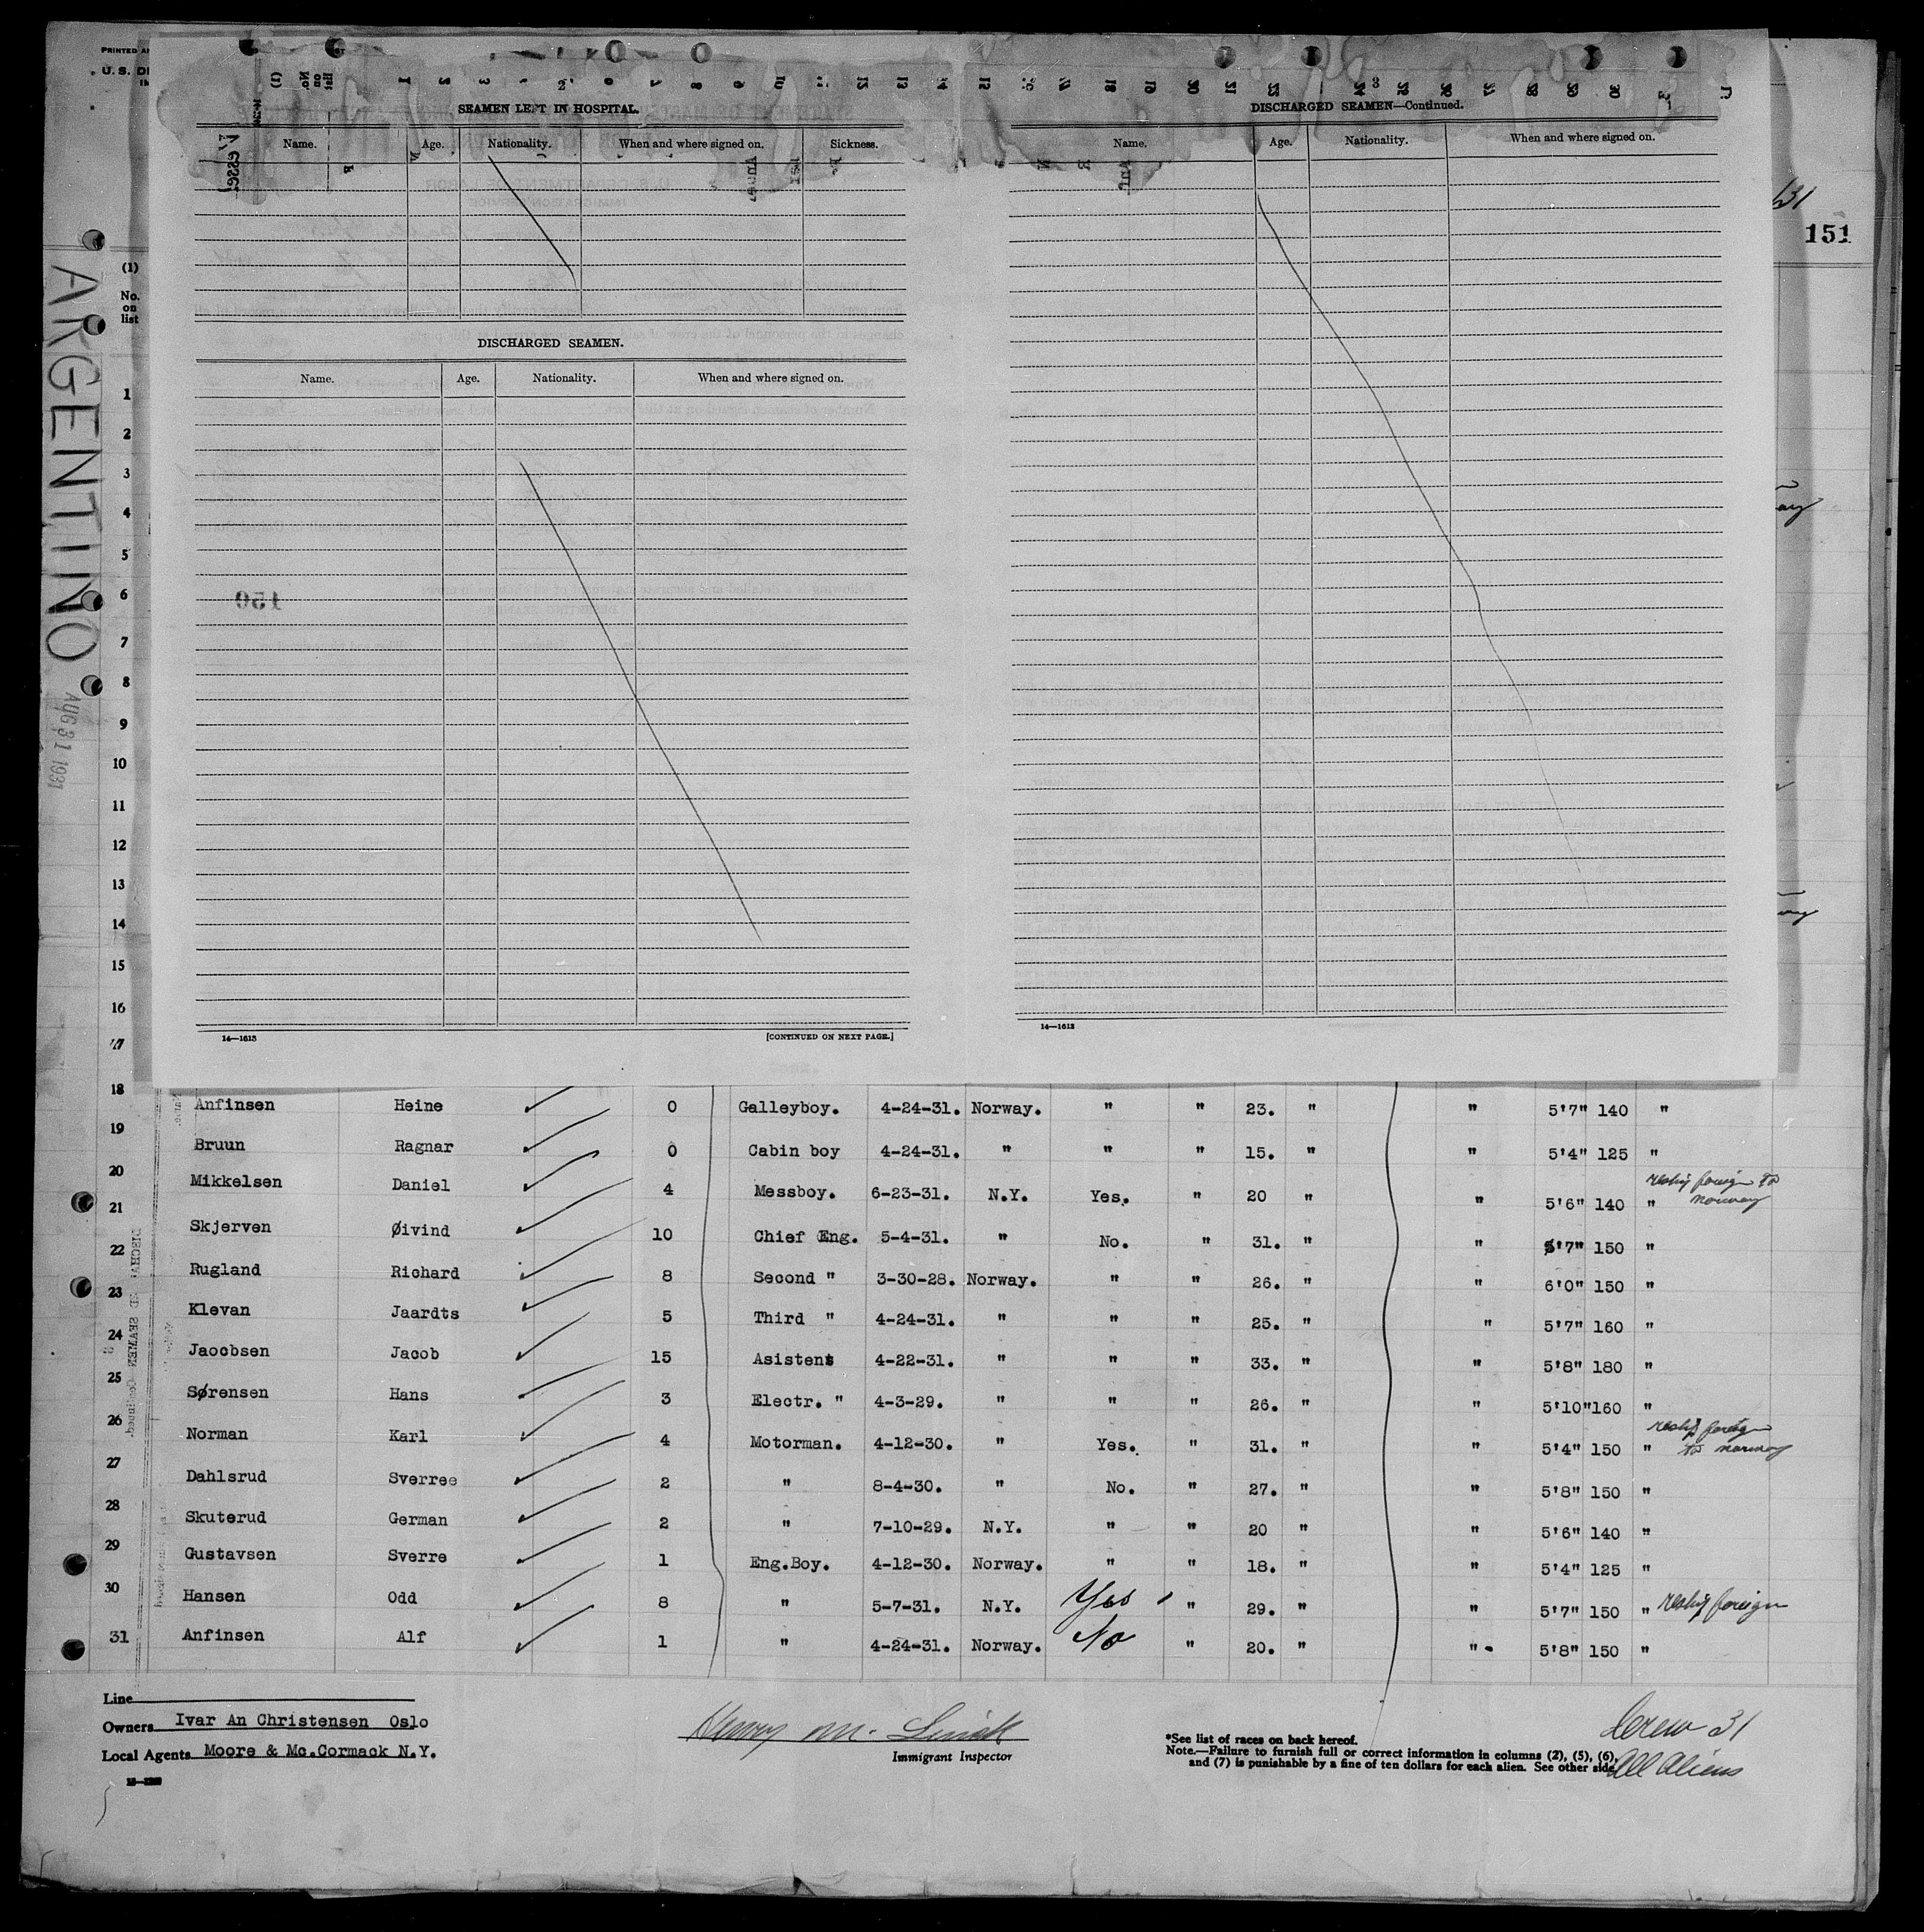 PRINTED
U. S. D
SEAMEN LEFT IN HOSPITAL.
Name. Age. Nationality. When and where signed on. Sickness.
DISCHARGED SEAMEN.
Name. Age. Nationality. When and where signed on.
14—1613 [CONTINUED ON NEXT PAGE.]
3
DISCHARGED SEAMEN—Continued.
Name. Age. Nationality. When and where signed on.
14—1613
151
ARGENTINO
AUG 31 1931
(1)
No.
on
list
1
2
3
4
5
6
7
8
9
10
11
12
13
14
15
16
17
18 Anfinsen Heine 0 Galleyboy. 4-24-31. Norway. " " 23. " " 5'7" 140 "
19 Bruun Ragnar 0 Cabin boy 4-24-31. " " " 15. " " 5'4" 125 "
20 Mikkelsen Daniel 4 Messboy. 6-23-31. N.Y. Yes. " 20 " " 5'6" 140 " reship foreign to Norway
21 Skjerven Øivind 10 Chief Eng. 5-4-31. " No. " 31. " " 5'7" 150 "
22 Rugland Richard 8 Second " 3-30-28. Norway. " " 26. " " 6'0" 150 "
23 Klevan Jaardts 5 Third " 4-24-31. " " " 25. " " 5'7" 160 "
24 Jaocbsen Jacob 15 Asistent 4-22-31. " " " 33. " " 5'8" 180 "
25 Sørensen Hans 3 Electr. " 4-3-29. " " " 26. " " 5'10" 160 "
26 Norman Karl 4 Motorman. 4-12-30. " Yes. " 31. " " 5'4" 150 " reship foreign to Norway
27 Dahlsrud Sverree 2 " 8-4-30. " No. " 27. " " 5'8" 150 "
28 Skuterud German 2 " 7-10-29. N.Y. " " 20 " " 5'6" 140 "
29 Gustavsen Sverre 1 Eng.Boy. 4-12-30. Norway. " " 18. " " 5'4" 125 "
30 Hansen Odd 8 " 5-7-31. N.Y. Yes " 29. " " 5'7" 150 " reship foreign
31 Anfinsen Alf 1 " 4-24-31. Norway. No " 20. " " 5'8" 150 "
Line
Owners Ivar An Christensen Oslo
Local Agents Moore & Mc.Cormack N.Y.
Henry M.
Immigrant Inspector
*See list of races on back hereof.
Note.—Failure to furnish full or correct information in columns (2), (5), (6),
and (7) is punishable by a fine of ten dollars for each alien. See other side.
Crew 31
All Aliens